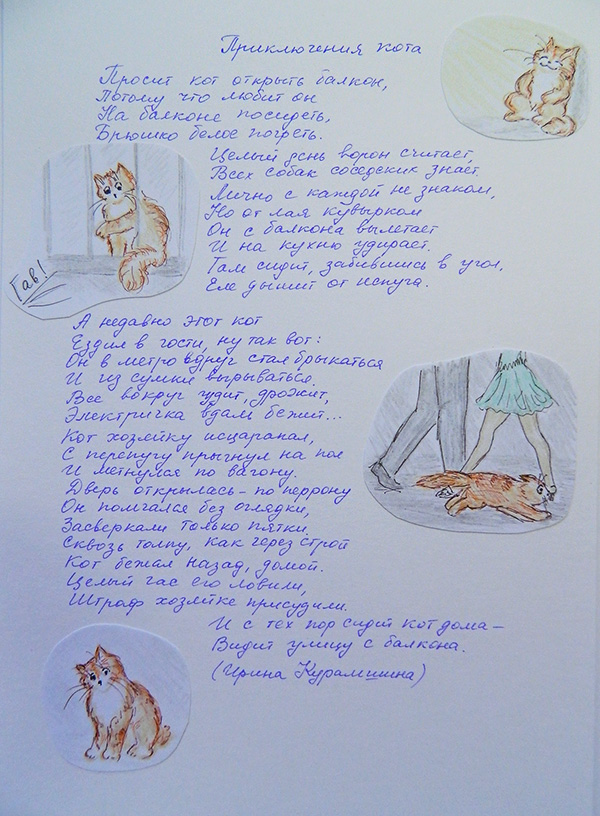 Приключения кота
Просит кот открыть балкон,
Потому что любит он
На балконе посидеть,
Брюшко белое погреть.
Целый день ворон считает,
Всех собак соседских знает.
Лично с каждой не знаком,
Но от лая кувырком
Он с балкона вылетает
И на кухню удирает.
Там сидит, забившись в угол,
Еле дышит от испуга.
Гав!
А недавно этот кот
Ездил в гости, ну так вот:
Он в метро вдруг стал брыкаться
И из сумки вырываться.
Все вокруг гудит, дрожит,
Электричка вдаль бежит...
Кот хозяйку исцарапал,
С перепугу прыгнул на пол
И метнулся по вагону.
Дверь открылась - по перрону
Он помчался без оглядки,
Засверкали только пятки.
Сквозь толпу, как через строй
Кот бежал назад, домой.
Целый час его ловили,
Штраф хозяйке присудили.
И с тех пор сидит кот дома -
Видит улицу с балкона.
(Ирина Курамшина)